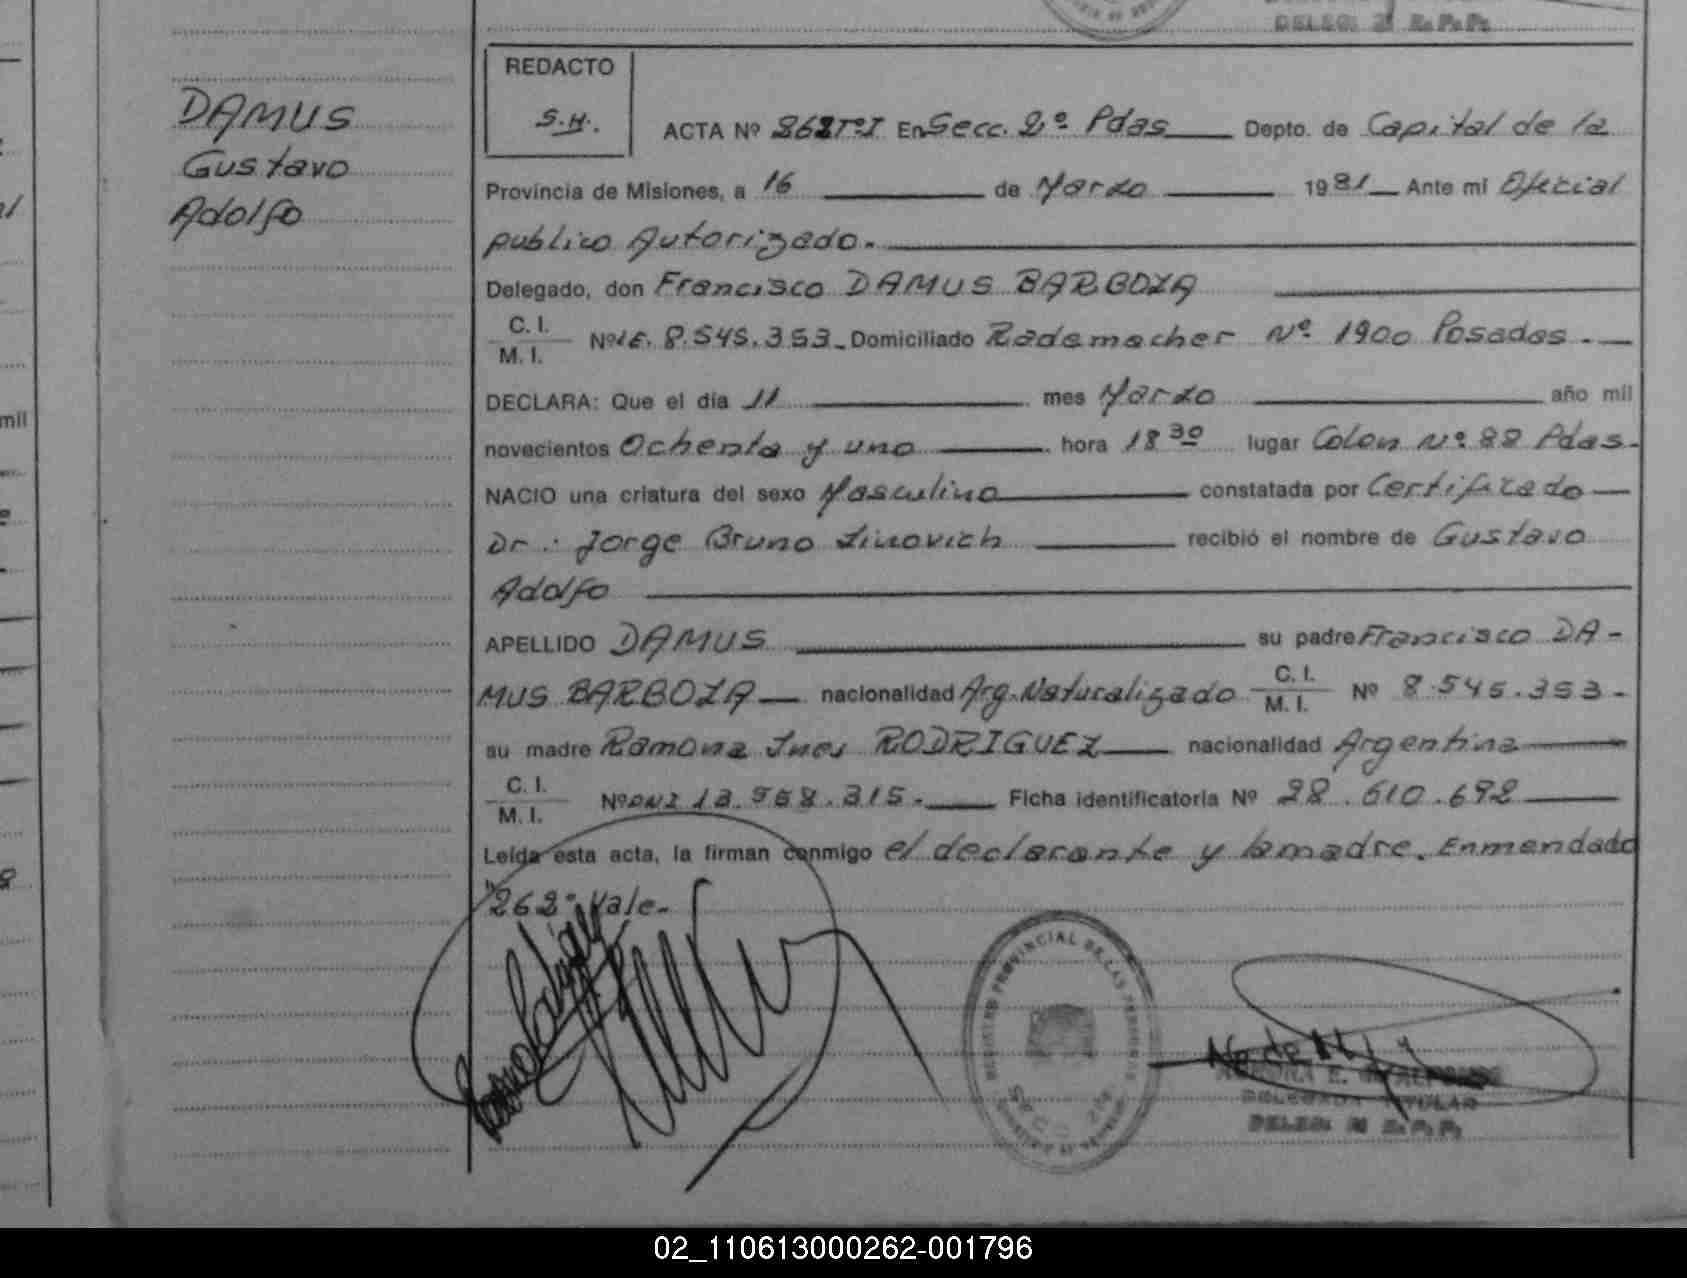 DELEG. 2ª R.P.P.
REDACTO
S.H.
DAMUS
Gustavo
Adolfo
ACTA Nº 262TºI En Secc. 2º Pdas Depto. de Capital de la
Provincia de Misiones, a 16 de Marzo 1981 Ante mi Oficial
publico Autorizado.
Delegado, don Francisco DAMUS BARBOZA
C. I.
M. I. Nº LE. 8.545.353 Domiciliado Rademacher Nº 1900 Posadas.
DECLARA: Que el día 11 mes Marzo año mil
novecientos Ochenta y uno hora 18 30 lugar Colon Nº 88 Pdas.
NACIO una criatura del sexo Masculino constatada por Certificado
Dr.: Jorge Bruno recibió el nombre de Gustavo
Adolfo
APELLIDO DAMUS su padre Francisco DA-
MUS BARBOZA nacionalidad Arg. Naturalizado C. I. M. I. Nº 8.545.353-
su madre Ramona Ines RODRIGUEZ nacionalidad Argentina
C. I.
M. I. Nº DNI 13.558.315.- Ficha identificatoria Nº 28.610.692
Leída esta acta, la firman conmigo el declarante y la madre. Enmendado
262: Vale.
REGISTRO PROVINCIAL DE LAS PERSONAS
SECC. 2ª
DELEGADA TITULAR
DELEG. 2ª R.P.P.
mil
02_110613000262-001796